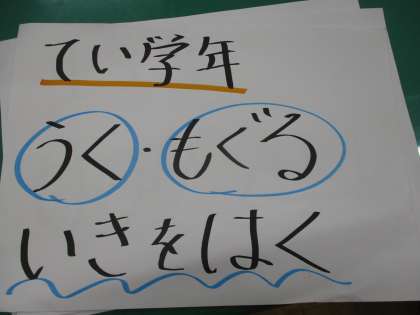 てい学年
うく・もぐる
いきをはく